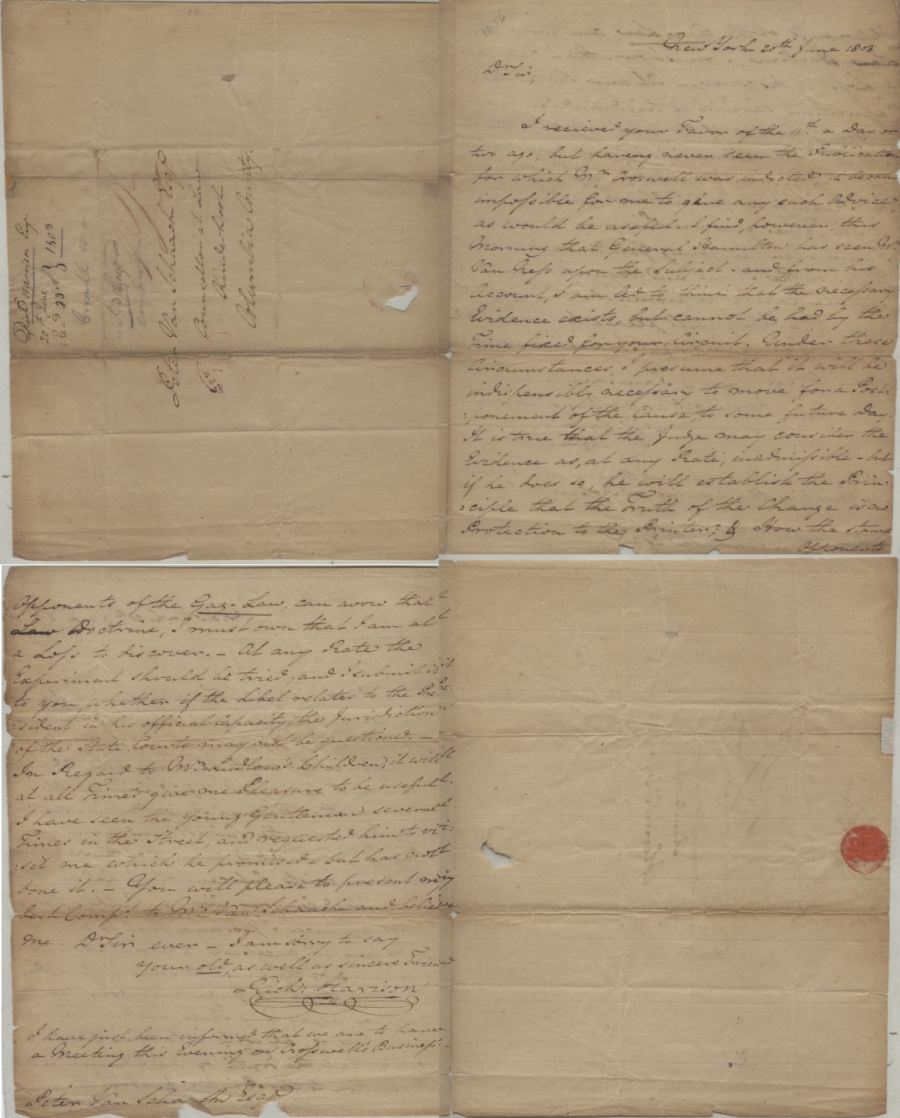 Rich.d Harison Esq.
20 June } 1803
Peter Van Schaack Esq.r
Counsellor at Law
Kinderhook
Columbia County.
New York 20th June 1803
Dr Sir
I received your Favor of the 11th a Day or
two ago; but having never seen the Publication
for which Mr. Croswell was indicted, it became
impossible for me to give any such Advice
as would be useful. I find, however, this
Morning that General Hamilton has seen Mr.
Van Ness upon the Subject - and from his
Account, I am led to think that the necessary
Evidence exists, but cannot be had by the
Time fixed for your Circuit. Under these
Circumstances, I presume that it will be
indispensibly necessary to move for a Post-
:ponement of the Cause, to some future Day.
It is true that the Judge may consider the
Evidence as, at any Rate, inadmissible - but
if he does so, he will establish the Prin-
:ciple that the Truth of the Charge is no
Protection to the Printer; & How the
opponents
opponents of the Gag-Law, can avow that
Doctrine, I must own that I am at
a Loss to discover. - At any Rate the
Experiment should be tried; and I submit it
to you whether if the Libel relates to the Pre-
:sident in his official Capacity, the Jurisdiction
of the State Courts may not be questioned. -
In Regard to Mr. Ludlow's Children, it will
at all Times give me Pleasure to be useful
I have seen the young Gentleman several
Times in the Street, and requested him to vi-
:sit me which he promised - but has not
done it. - You will please to present my
best Comp.ts to Mrs. Van Schaack and believe
me Dr Sir ever - I am sorry to say
your old, as well as sincere Friend
Rich.d Harison
I have just been informed that we are to have
a Meeting this Evening on Croswell's Business -
Peter Van Schaack Esq.r